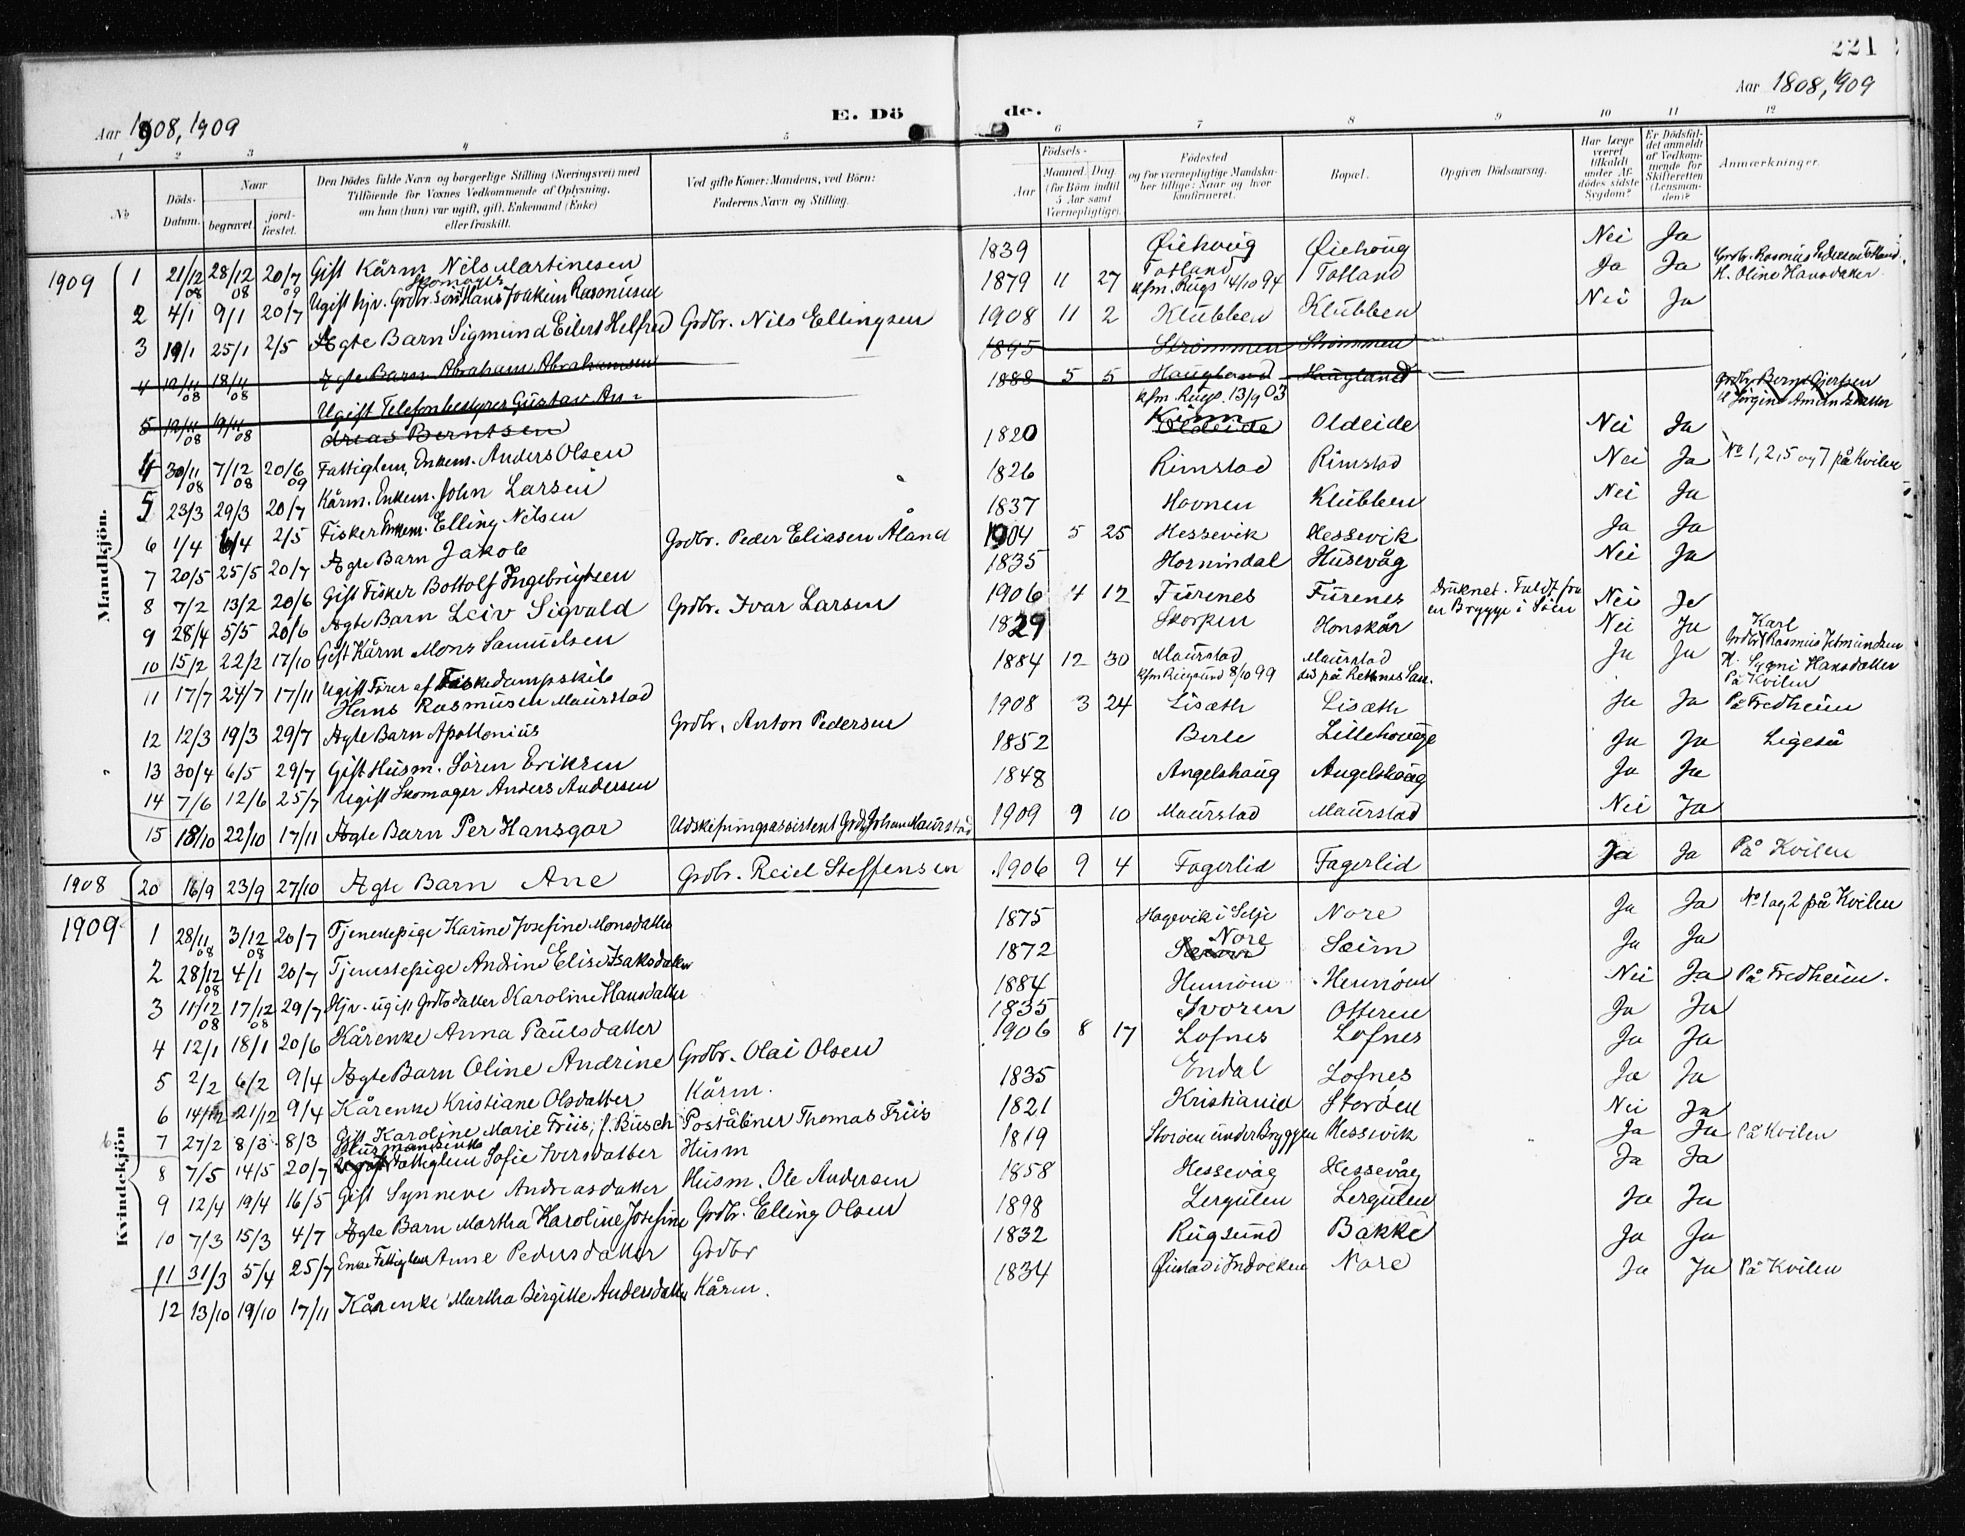 221
Aar 1908, 1909
E. Dö de.
Aar 1808, 1909
1 2 3 4 5 6 7 8 9 10 11 12
No
Döds-Datum.
Naar
begravet.
jord-fæstet.
Den Dödes fulde Navn og borgerlige Stilling (Næringsvei) med
Tilföiende for Voxnes Vedkommende af Oplysning,
om han (hun) var ugift, gift, Enkemand (Enke)
eller fraskilt.
Ved gifte Koner: Mandens, ved Börn:
Faderens Navn og Stilling.
Aar
Födsels-
Maaned Dag
(for Börn indtil
5 Aar samt
Værnepligtige).
Födested
og for værnepligtige Mandska-
ber tillige: Naar og hvor
konfirmeret.
Bopæl.
Opgiven Dödsaarsag.
Har Læge
været
tilkaldt
under Af-
dödes sidste
Sygdom?
Er Dödsfal-
det anmeldt
af Vedkom-
mende for
Skifteretten
(Lensman-
den)?
Anmærkninger.
Mandkjön.
1909 1 21/12 08 28/12 08 20/7 09 Gift Kårm Nils Martinesen 1839 Øiehoug Øiehoug Nei Ja
2 4/1 9/1 20/7 Ugift hjv. Grdbr. Sön Skomager Hans Joakim Rasmusen 1879 11 27 Totland kfm. Rugs 14/10 94 Totland Ja Ja Grdbr. Rasmus Pedersen Totland. H. Oline Hansdatter
3 19/1 25/1 2/5 Ægte Barn Sigmund Eilert Helfred Grdbr. Nils Ellingsen 1908 11 2 Klubben Klubben Nei Ja
4 12/11 08 18/11 08 Ægte Barn Abraham Abrahamsen 1895 Strömmen Strömmen
5 12/11 08 19/11 08 Ugift Telefonbestyrer Gustav An-
dreas Berntsen 1888 5 5 Haugland kfm. Rugs. 13/9 03 Haugland Grdbr. Bernt Gjertsen H. Jørgine Amundsdatter
4 30/11 08 7/12 08 20/6 09 Fattiglem, Enkem. Anders Olsen 1820 Oldeide Oldeide Nei Ja
5 23/3 29/3 20/7 Kårm. Enkem. John Larsen 1826 Rimstad Rimstad Nei Ja No 1, 2, 5 og 7 på Kvilen
6 1/4 6/4 2/5 Fisker Enkem. Elling Nilsen 1837 Havnen Klubben Nei Ja
7 20/5 25/5 20/7 Ægte Barn Jakob Grdbr. Peder Eliasen Åland 1904 5 25 Hessevik Hessevik Ja Ja
8 7/2 13/2 20/6 Gift Fisker Bottolf Ingebrigtsen 1835 Hornindal Husevåg Nei Ja
9 28/4 5/5 20/6 Ægte Barn Leiv Sigvald Grdbr. Ivar Larsen 1906 4 12 Furenes Furenes Druknet. Faldt fra
en Brygge i Söen Nei Ja
10 15/2 22/2 17/10 Gift Kårm Mons Samuelsen 1829 Skorpen Honskår Nei Ja
11 17/7 24/7 17/11 Ugift Förer af Fiskedampskib
Hans Rasmusen Maurstad 1884 12 30 Maurstad kfm Rugsund 8/10 99 Maurstad Ja Ja Karl
Grdbr. Rasmus
H. Hansdatter
På Kvilen
12 12/3 19/3 29/7 Ægte Barn Apollonius Grdbr. Anton Pedersen 1908 3 24 Lisæth Lisæth Ja Ja På Fredheim
13 30/4 6/5 29/7 Gift Husm. Sören Eriksen 1852 Berle Lillehouge Ja Ja Ligeså
14 7/6 12/6 25/7 Ugift Skomager Anders Andersen 1848 Angelshaug Angelshaug Ja Ja
15 18/10 22/10 17/11 Ægte Barn Per Hansgar Udskiftningsassistent Grdbr. Johan Maurstad 1909 9 10 Maurstad Maurstad Nei Ja
1908 20 16/9 23/9 27/10 Ægte Barn Ane Grdbr. Reiel Steffensen 1906 9 4 Fagerlid Fagerlid Ja Ja På Kvilen
Kvindekjön
1909 1 28/11 08 3/12 08 20/7 Tjenestepige Karine Josefine Monsdatter 1875 Hagevik i Selje Nore Ja Ja No 1 og 2 på Kvilen
2 28/12 08 4/1 20/7 Tjenestepige Andrine Elise Isaksdatter 1872 Nore Sæim Ja Ja
3 11/12 08 17/12 08 29/7 Hjv. ugift Grdbrdatter Karoline Hansdatter 1884 Hennöen Hennöen Nei Ja På Fredheim.
4 12/1 18/1 20/6 Kårenke Anna Paulsdatter 1835 Svoren Otteren Ja Ja
5 2/2 6/2 9/4 Ægte Barn Oline Andrine Grdbr. Olai Olsen 1906 8 17 Lofnes Lofnes Ja Ja
6 14/12 21/12 9/4 Kårenke Kristiane Olsdatter Kårm. 1835 Endal Lofnes Ja Ja
7 27/2 8/3 8/3 Gift Karoline Marie Friis, f. Busch Poståbner Thomas Friis 1821 Kristiania Storöen Nei Ja
8 7/5 14/5 20/7 Husmandsenke Fattiglem Sofie Iversdatter Husm 1819 Storöen under Bryggen Hessevik Ja Ja På Kvilen
9 12/4 19/4 16/5 Gift Synneve Andreasdatter Husm. Ole Andersen 1858 Hessevåg Hessevåg Ja Ja
10 7/3 15/3 4/7 Ægte Barn Martha Karoline Josefine Grdbr. Elling Olsen 1898 Lerguten Lerguten Ja Ja
11 31/3 5/4 25/7 Enke Fattiglem Anne Pedersdatter Grdbr 1832 Rugsund Bakke Ja Ja
12 13/10 19/10 17/11 Kårenke Martha Birgitte Andersdatter Kårm. 1834 Øiestad i Indviken Nore Ja Ja På Kvilen